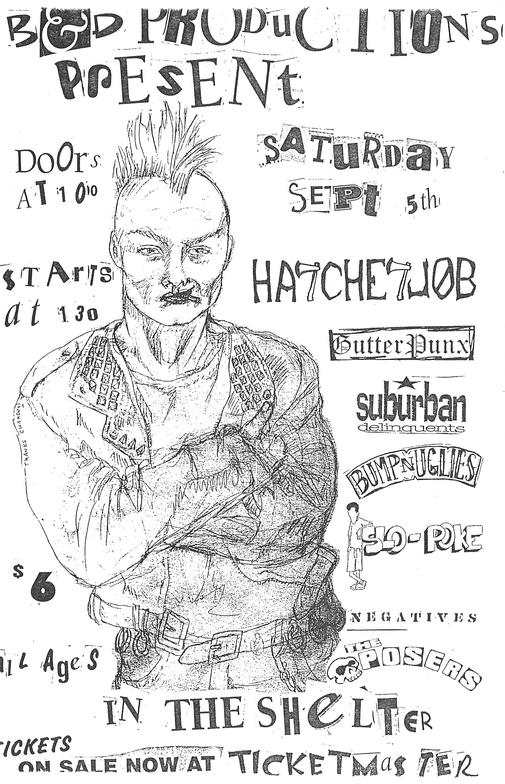 B&D PRODuCTIONS
PrESENt
DoOrs
AT 1 0⁰⁰
SATURDaY
SEPt 5th
STArTS
at 130
HATCHETJOB
GutterPunx
suburban
delinquents
BUMP'N UGLIES
SLO-POKE
$6
NEGATIVES
THE
POSERS
All AgeS
IN THE SHeLTER
TICKETS
ON SALE NOW AT TICKETMaSTER